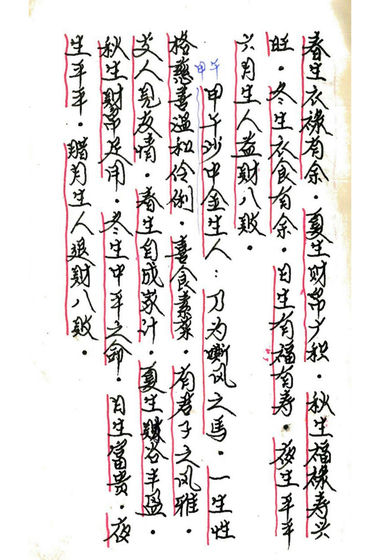 春生衣禄有余．夏生财帛广积．秋生福禄寿兴
旺．冬生衣食有余．日生有福有寿．夜生平平
六月生人益财八败．
甲午
甲午沙中金生人：乃为嘶风之马．一生性
格慈善温和伶俐．善食素菜．有君子之风雅．
交人见友情．春生自成家计．夏生财谷丰盈．
秋生财帛足用．冬生中平之命．日生富贵．夜
生平平．腊月生人退财八败．